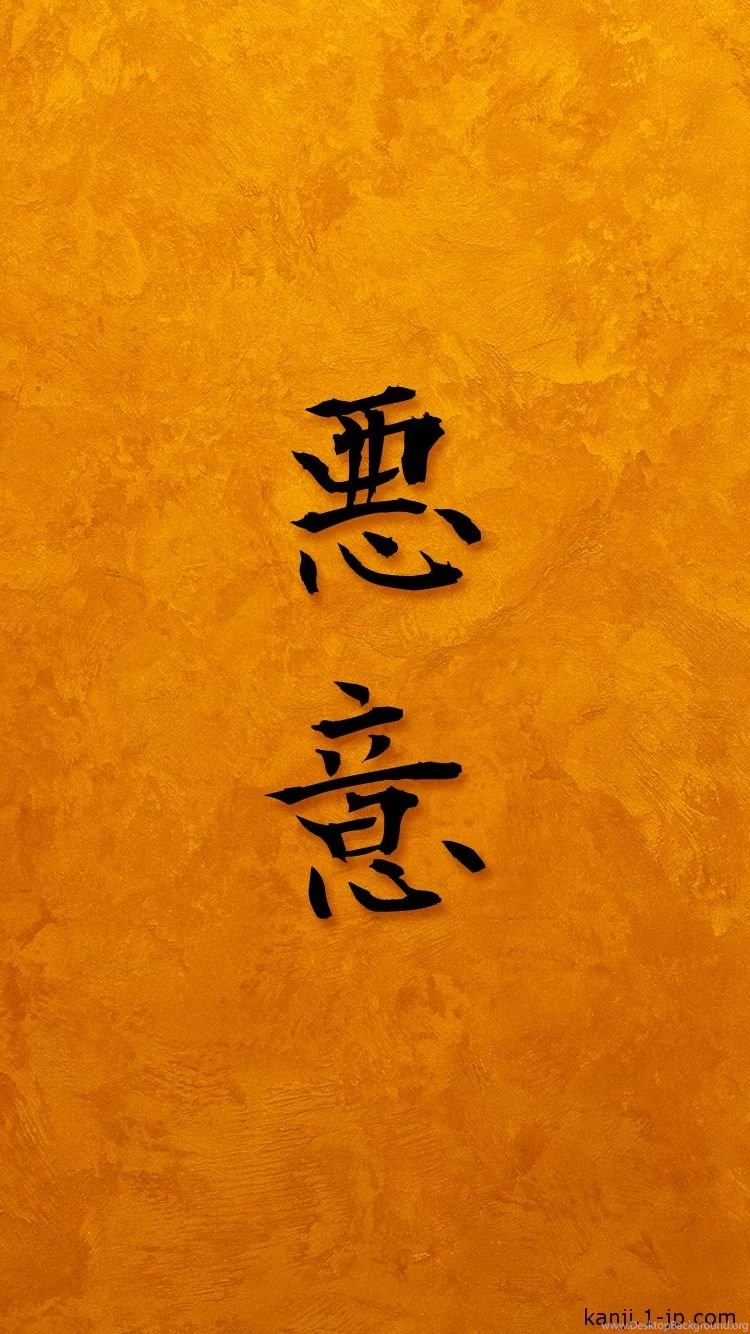 悪
意
kanji.1-jp.com
www.DesktopBackground.org